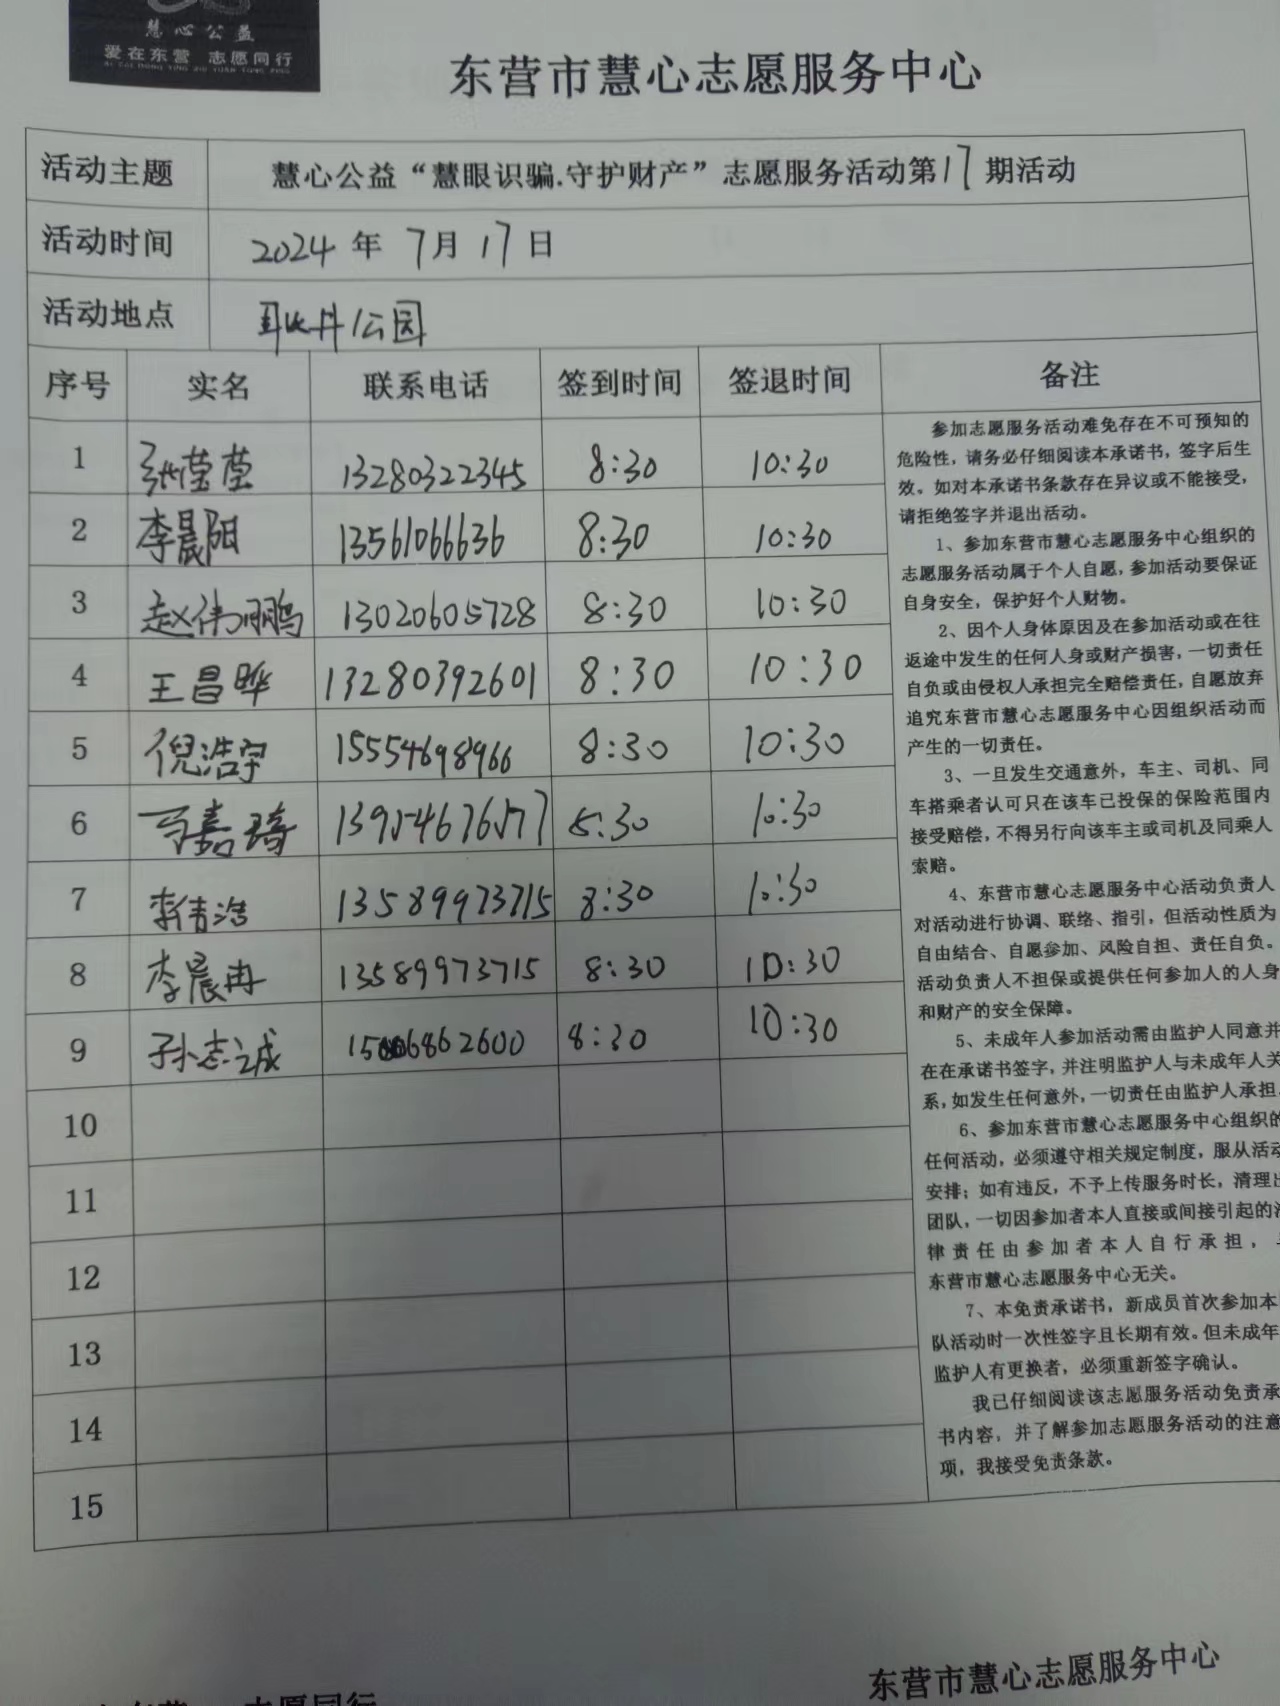 慧心公益
爱在东营 志愿同行
东营市慧心志愿服务中心
活动主题 慧心公益“慧眼识骗.守护财产”志愿服务活动第17期活动
活动时间 2024年7月17日
活动地点 耿井公园
序号 实名 联系电话 签到时间 签退时间 备注
1 张莹莹 13280322345 8:30 10:30
2 李晨阳 13561066636 8:30 10:30
3 赵伟鹏 13020605728 8:30 10:30
4 王昌晔 13280392601 8:30 10:30
5 倪浩宇 15554698966 8:30 10:30
6 马嘉琦 8:30 10:30
7 李青浩 13589973715 8:30 10:30
8 李晨冉 13589973715 8:30 10:30
9 孙志诚 8:30 10:30
10
11
12
13
14
15
参加志愿服务活动难免存在不可预知的
危险性，请务必仔细阅读本承诺书，签字后生
效。如对本承诺书条款存在异议或不能接受，
请拒绝签字并退出活动。
1、参加东营市慧心志愿服务中心组织的
志愿服务活动属于个人自愿，参加活动要保证
自身安全，保护好个人财物。
2、因个人身体原因及在参加活动或在往
返途中发生的任何人身或财产损害，一切责任
自负或由侵权人承担完全赔偿责任，自愿放弃
追究东营市慧心志愿服务中心因组织活动而
产生的一切责任。
3、一旦发生交通意外，车主、司机、同
车搭乘者认可只在该车已投保的保险范围内
接受赔偿，不得另行向该车主或司机及同乘人
索赔。
4、东营市慧心志愿服务中心活动负责人
对活动进行协调、联络、指引，但活动性质为
自由结合、自愿参加、风险自担、责任自负。
活动负责人不担保或提供任何参加人的人身
和财产的安全保障。
5、未成年人参加活动需由监护人同意并
在在承诺书签字，并注明监护人与未成年人关
系，如发生任何意外，一切责任由监护人承担.
6、参加东营市慧心志愿服务中心组织的
任何活动，必须遵守相关规定制度，服从活动
安排；如有违反，不予上传服务时长，清理出
团队，一切因参加者本人直接或间接引起的法
律责任由参加者本人自行承担，与
东营市慧心志愿服务中心无关。
7、本免责承诺书，新成员首次参加本
队活动时一次性签字且长期有效。但未成年
监护人有更换者，必须重新签字确认。
我已仔细阅读该志愿服务活动免责承
书内容，并了解参加志愿服务活动的注意
项，我接受免责条款。
东营市慧心志愿服务中心
东营 志愿同行